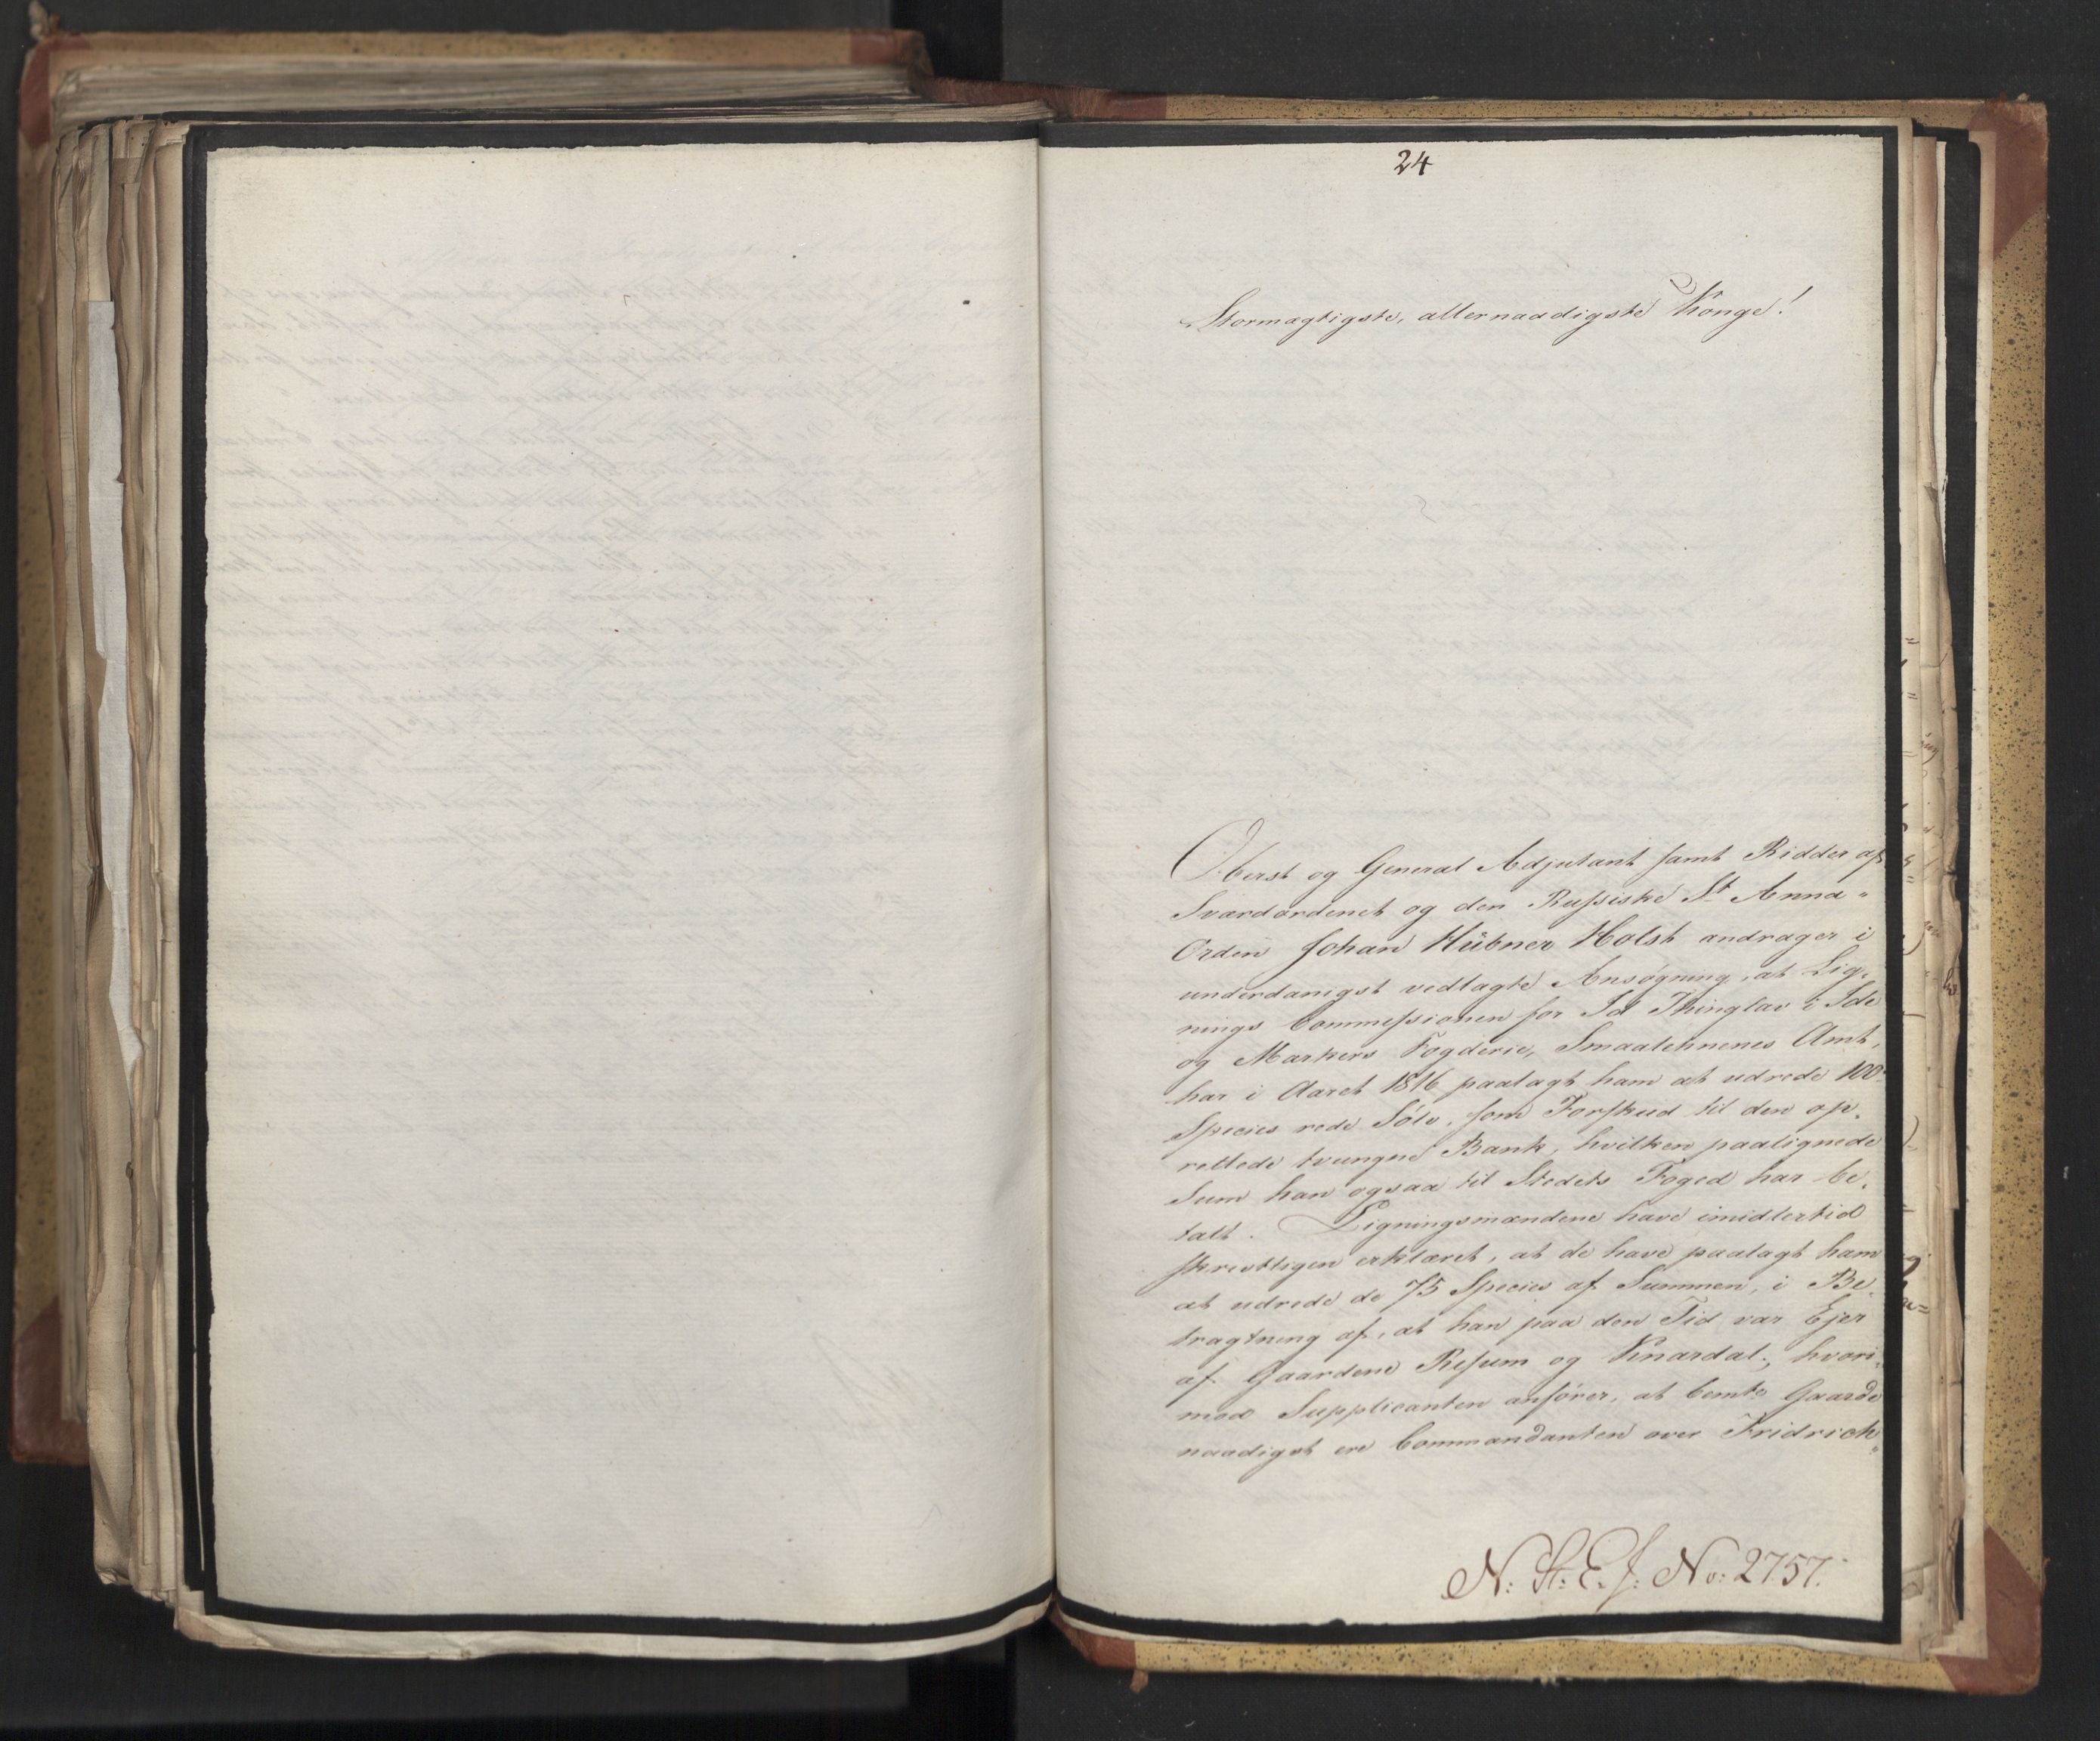 24
Stormægtigste, allernaadigste Konge!
Oberst og General Adjutant samt Ridder af
Sværdordenet og den Russiske St Anna-
Orden Johan Hübner Holst andrager i
underdanigst vedlagte Ansøgning, at Lig-
nings Commissionen for Id Thinglav i Ide
og Markers Fogderie, Smaalehnenes Amt,
har i Aaret 1816 paalagt ham at udrede 100
Species rede Sølv, som Forskud til den op-
rettede tvungne Bank, hvilken paalignede
Sum han ogsaa til Stedets Foged har be-
talt. Ligningsmændene have imidlertid
skrivtligen erklæret, at de have paalagt ham
at udrede de 75 Species af Summen, i Be-
tragtning af, at han paa den Tid var Ejer
af Gaardene Resum og Knardal; hvori-
mod Supplicanten anfører, at bemte Gaarde
naadigst ere Commandanten over Fridrich-
N: St: E. J: No: 2757.